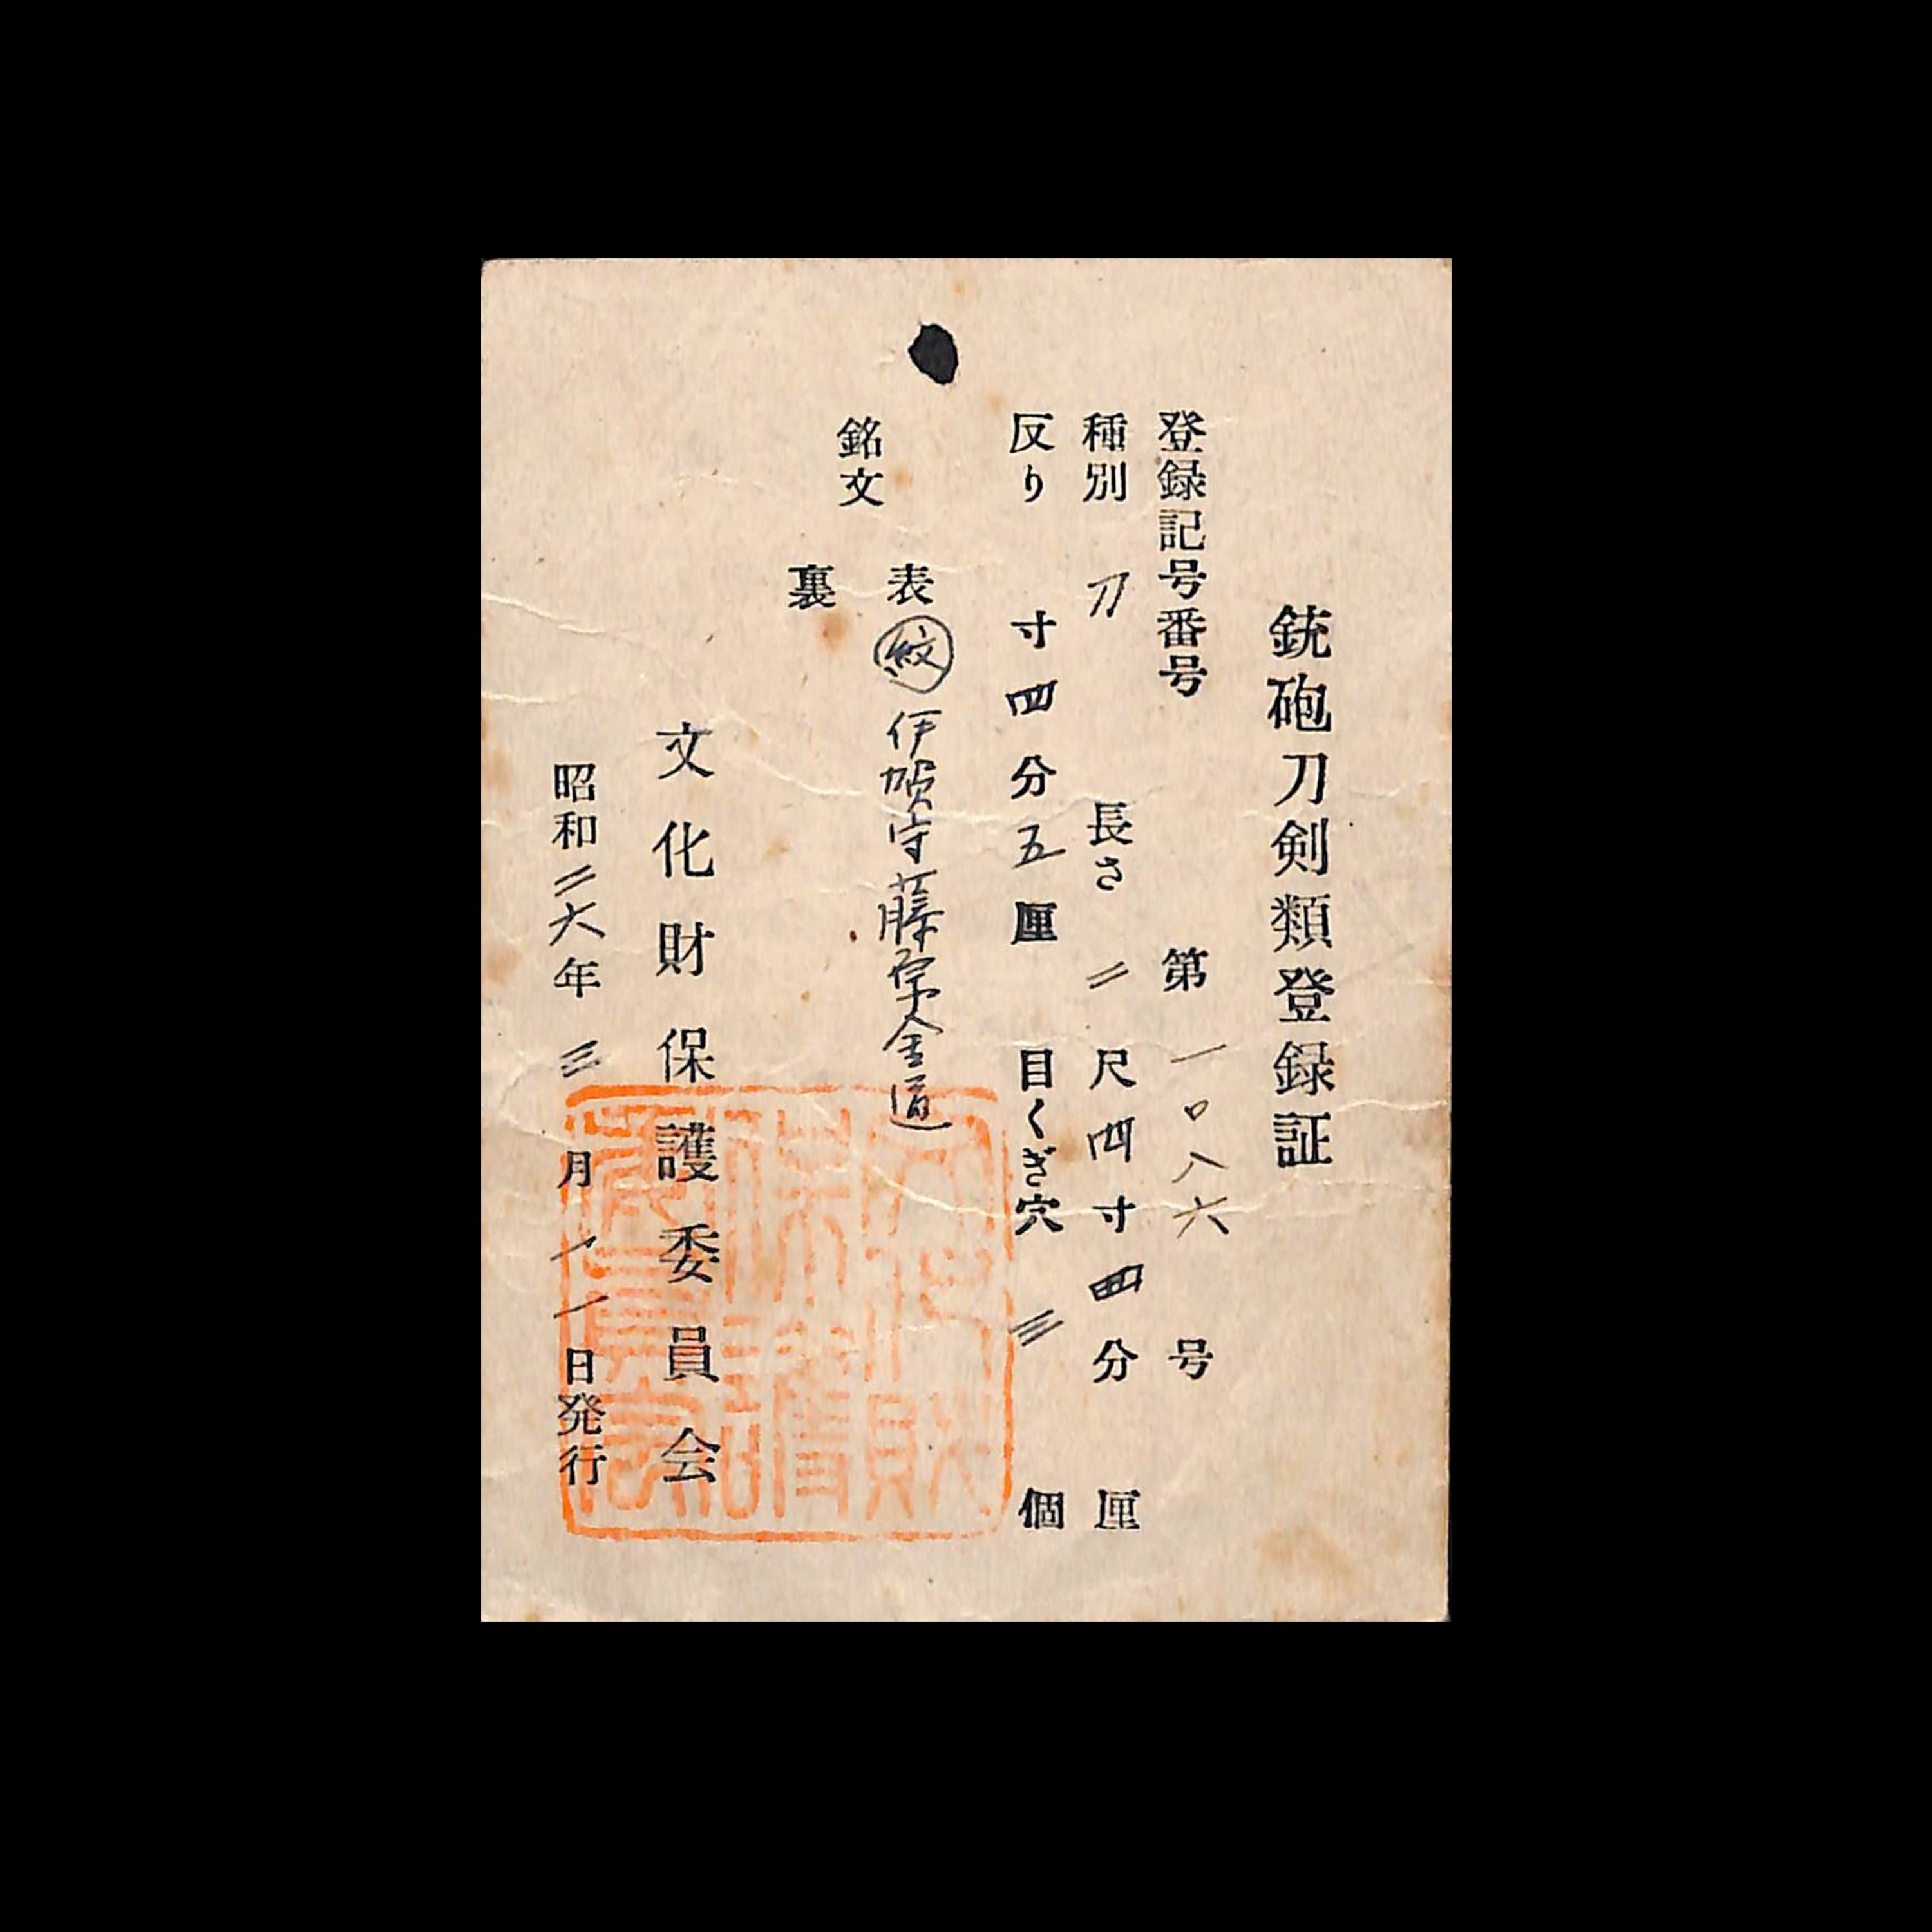 銃砲刀剣類登録証
登録記号番号 第一〇八六号
種別 刀 長さ 二尺四寸四分 厘
反り 寸四分五厘 目くぎ穴 三 個
銘文
表 紋 伊賀守藤原金道
裏
文化財保護委員会
昭和二六年三月一一日発行
文化財
保護
委員会